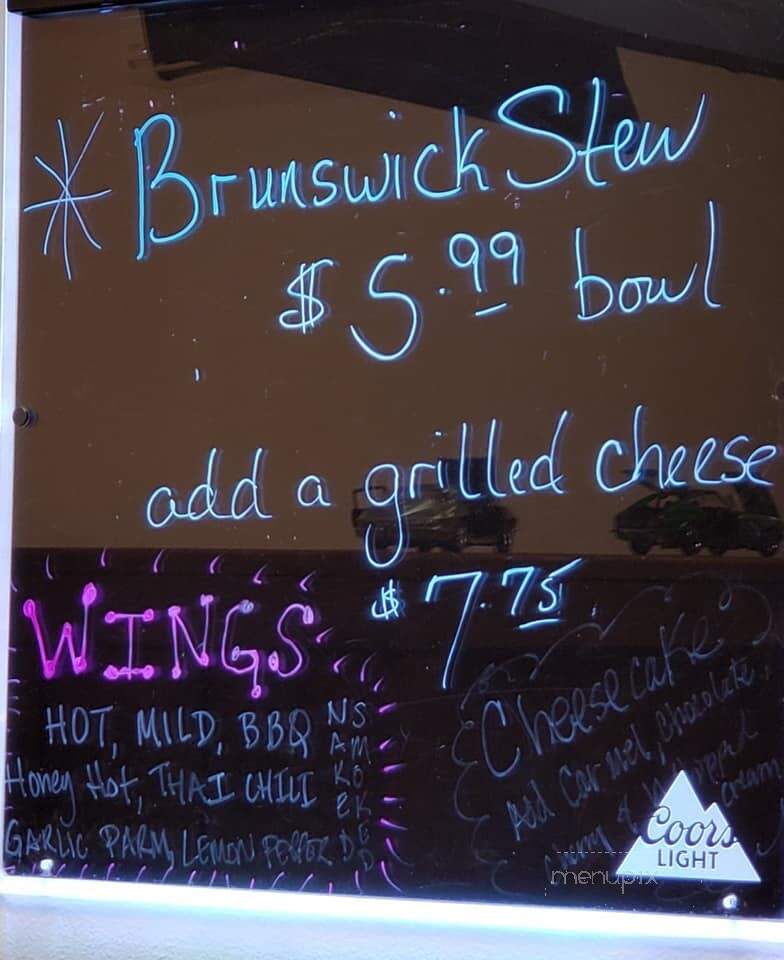 * Brunswick Stew
$5.99 bowl
add a grilled cheese
$7.75
WINGS
HOT, MILD, BBQ
Honey Hot, THAI CHILI
GARLIC PARM, LEMON PEPPER
NAKED
SMOKED
Cheesecake
Add Carmel, Chocolate,
Cherry & Whipped
cream
Coors
LIGHT
menupix